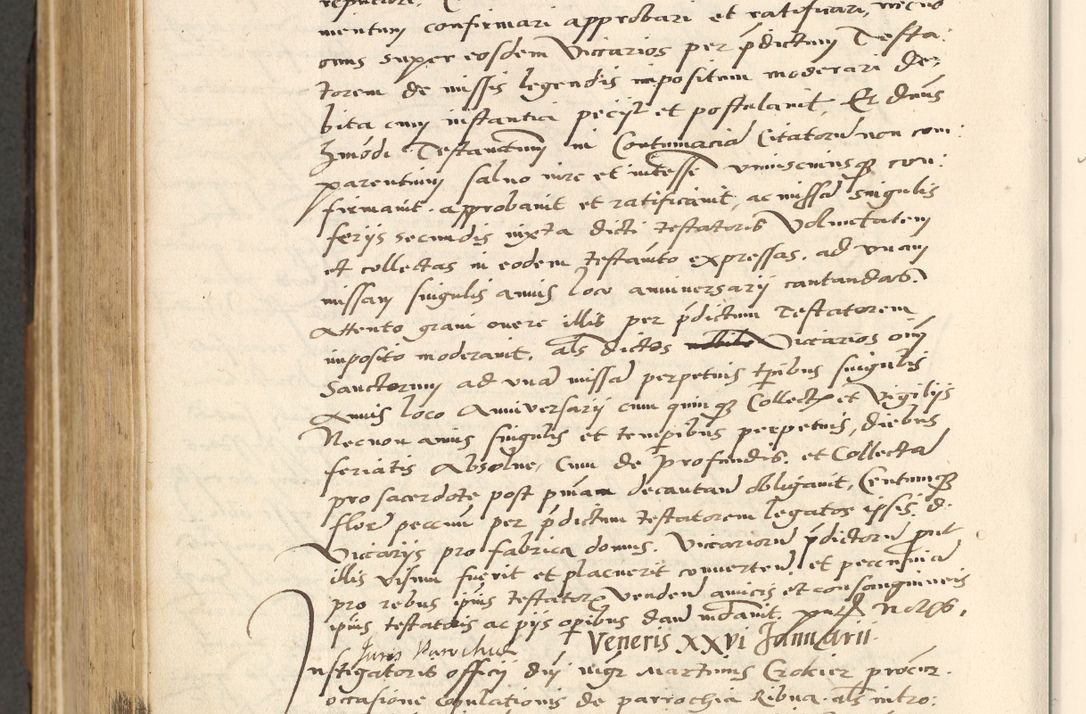 mentum confirmari approbari et ratificari, necno
onus super eosdem Viccarios per pdictum Testa:
torem de missis legendis impositum moderari de:
bita cum instantia peciit et postulavit, Et dnus
hmodi Testamentum in Contumacia Citatorum non com:
parentium salvo iure et interesse uniuscuiusque con:
firmavit approbavit et ratificavit, ac missa singulis
ferijs secundis iuxta dicti testatoris Voluntatem
et collectas in eodem testamto expressas, ad unam
missam singulis annis loco anniversarij cantandas
Attento gravi onere illis per pdictum Testatorem
imposito moderavit, als dictos Viccarios oim
Sanctorum ad una missa perpetuis tpibus singulis
Annis loco Anniversarij cum quinque Collectis et Vigilijs
Necnon annis singulis et temporibus perpetuis, diebus
feriatis Absolve, Cum de profundis, et Collecta
pro sacerdote post pmam decantan obligavit, Centumque
flor peccum per pdictum testatorem legatos ipsis d.
Viccarijs pro fabrica domus. Viccariorum pdictorum put
illis visum fuerit et placuerit converten, et peccunia
pro rebus ipius testatoris venden amicis et consanguineis
ipius testatoris ac pijs opibus dan mdavit, pntibus Notis.
Veneris XXVI Januarii.
Juris Parochus
Instigatoris officij dni vigr Martinus Crokier procur.
occasione copulationis de parrochia Ribna als intro: